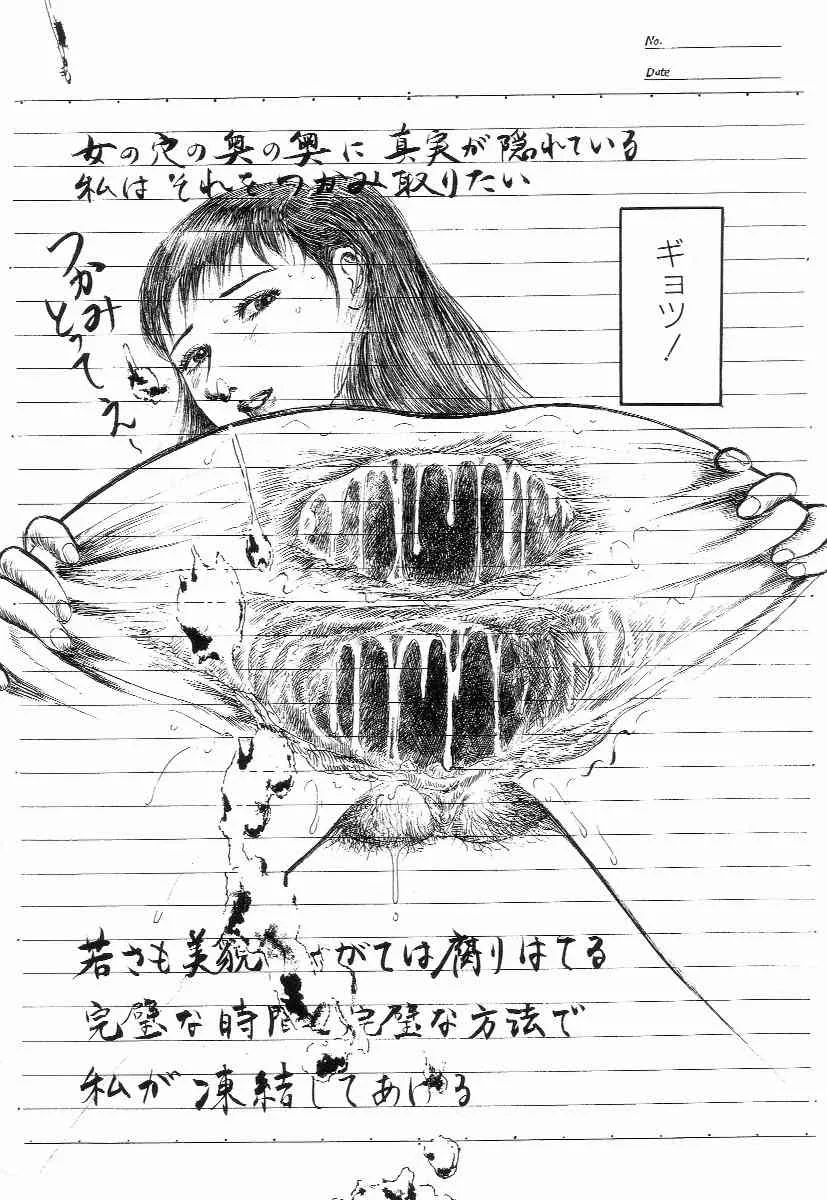 No.
Date
女の穴の奥の奥に真実が隠れている
私はそれをつかみ取りたい
ギョッ!
つかみ
とってえ〜
若さも美貌 がては腐りはてる
完璧な時間 完璧な方法で
私が凍結してあげる